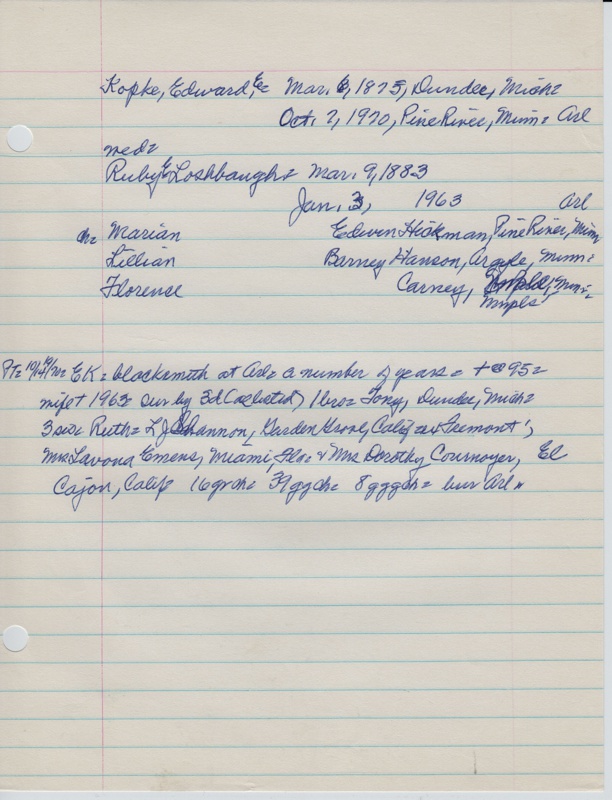 Kopke, Edward, E= Mar. 6, 1875, Dundee, Mich=
Oct. 7, 1970, Pine River, Minn= Arl
med=
Ruby E Loshbaugh= Mar. 9, 1883
Jan. 3, 1963 Arl
ch= Marian Edwin Hickman, Pine River, Minn
Lillian Barney Hanson, Argyle, Minn=
Florence Carney, Minn=
Mnpls
EK= blacksmith at Arl= a number of years= + @ 95=
wife + 1963= sur by 3d (as listed) 1 bro= Tony, Dundee, Mich=
3 sis= Ruth= L J Shannon, Garden Grove, Calif Fremont
Mrs Lavona Emens, Miami, Fla= & Mrs Dorothy Cournoyer, El
Cajon, Calif 16 grch= 39 ggch= 8 gggch= bur Arl=